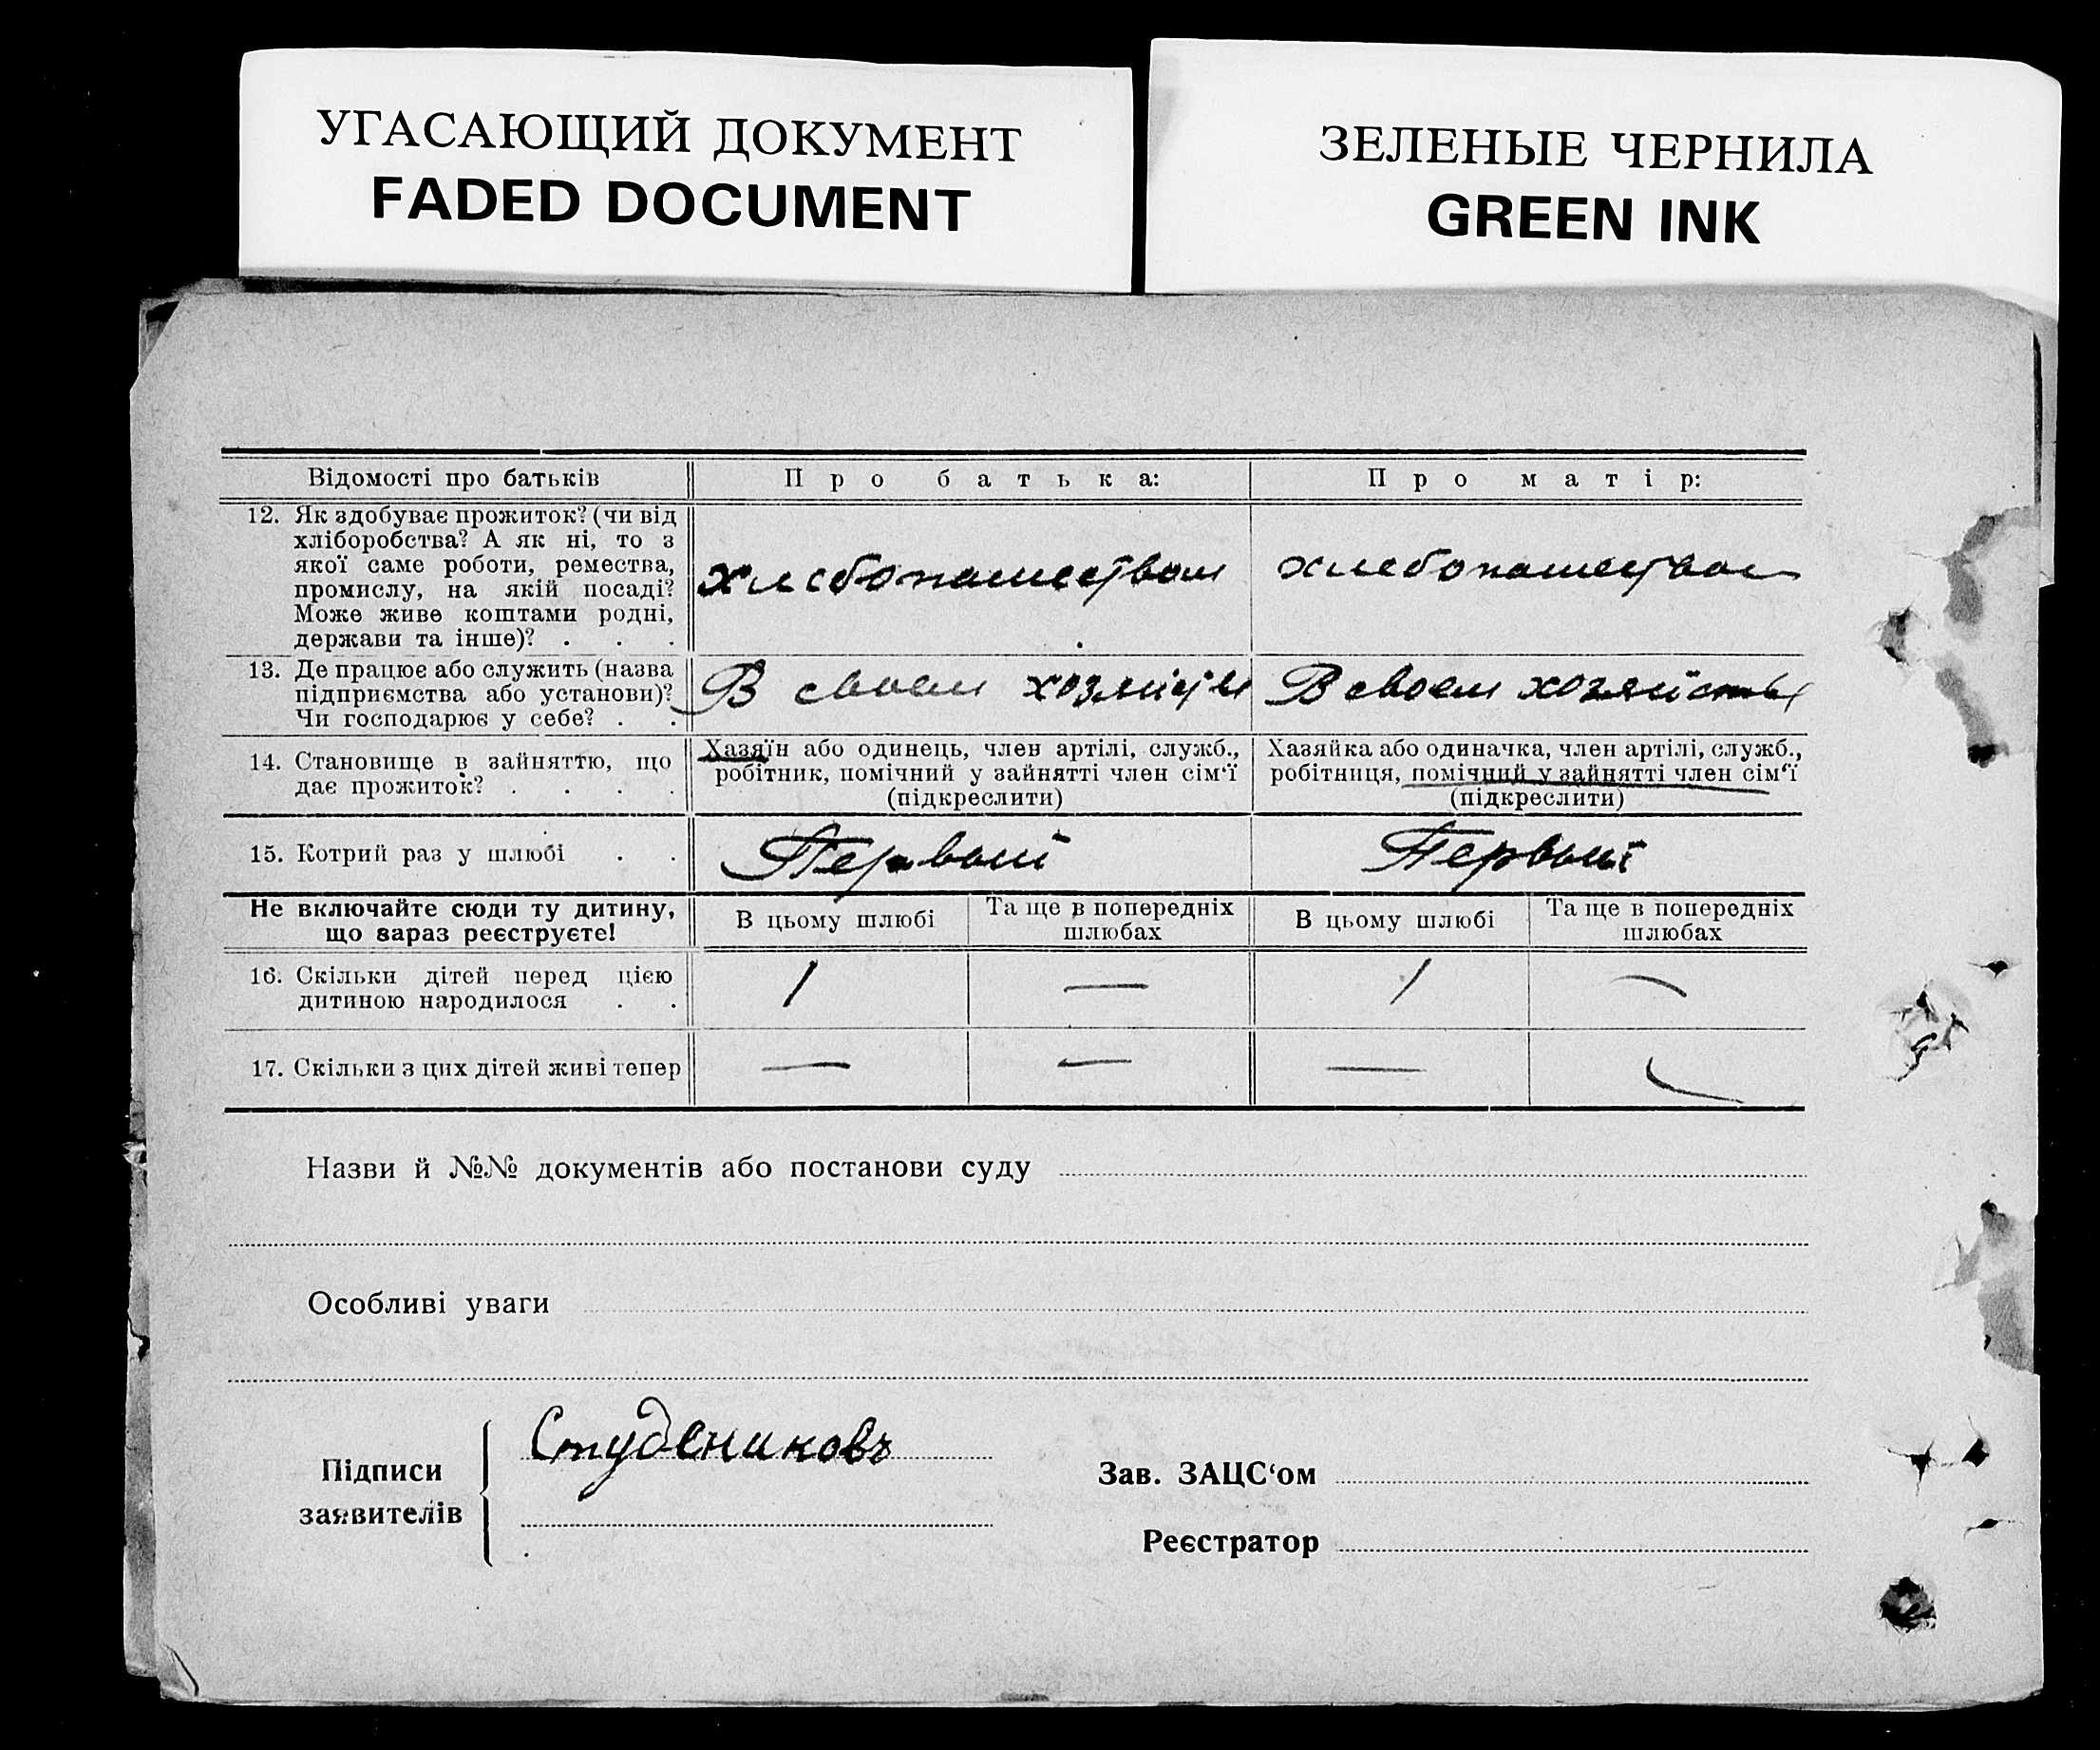 УГАСАЮЩИЙ ДОКУМЕНТ
FADED DOCUMENT
ЗЕЛЕНЫЕ ЧЕРНИЛА
GREEN INK
Відомості про батьків
Про батька:
Про матір:
12. Як здобуває прожиток? (чи від
хліборобства? А як ні, то з
якої саме роботи, ремества,
промислу, на якій посаді?
Може живе коштами родні,
держави та інше)? . . .
хлебопашеством
хлебопашеством
13. Де працює або служить (назва
підприємства або установи)?
Чи господарює у себе? . .
В своем хозяйстве
В своем хозяйстве
14. Становище в зайняттю, що
дає прожиток? . . . .
Хазяїн або одинець, член артілі, служб.,
робітник, помічний у зайнятті член сім‘ї
(підкреслити)
Хазяйка або одиначка, член артілі, служб.,
робітниця, помічний у зайнятті член сім‘ї
(підкреслити)
15. Котрий раз у шлюбі . .
Первый
Первый
Не включайте сюди ту дитину,
що зараз реєструєте!
В цьому шлюбі
Та ще в попередніх
шлюбах
В цьому шлюбі
Та ще в попередніх
шлюбах
16. Скільки дітей перед цією
дитиною народилося . .
1
—
1
—
17. Скільки з цих дітей живі тепер
—
—
—
—
Назви й №№ документів або постанови суду
Особливі уваги
Підписи
заявителів
Студениковъ
Зав. ЗАЦС‘ом
Реєстратор